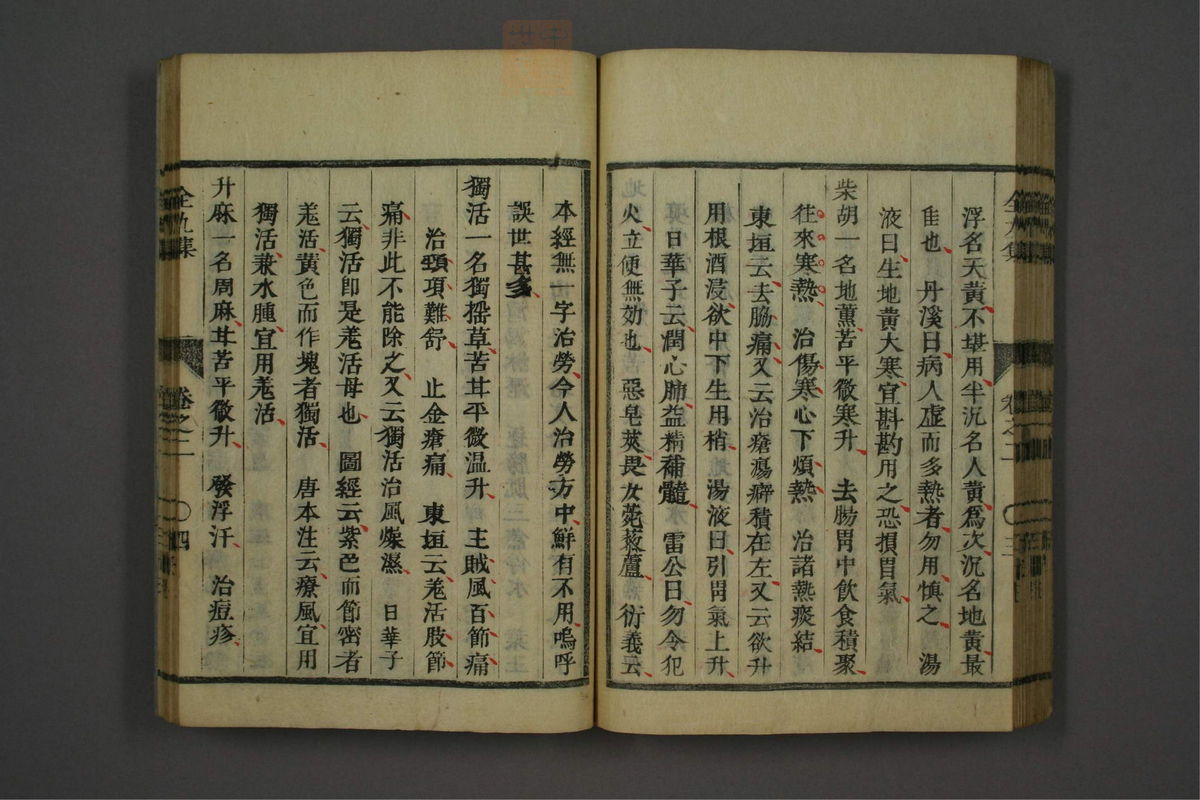 浮名天黃不堪用半沉名人黃爲次沉名地黃最
隹也 丹溪曰病人虛而多熱者勿用慎之 湯
液曰生地黃大寒宜斟酌用之恐損胃氣
柴胡一名地薰苦平微寒升 去腸胃中飲食積聚
往來寒熱 治傷寒心下煩熱 治諸熱痰結
東垣云去脇痛又云治瘡瘍癖積在左又云欲升
用根酒浸欲中下生用梢 湯液曰引胃氣上升
日華子云潤心肺益精補髓 雷公曰勿令犯
火立便無効也 惡皂莢畏女菀藜蘆 衍義云
全九集 卷之二 〇三
本經無一字治勞今人治勞方中鮮有不用嗚呼
誤世甚多
獨活一名獨搖草苦甘平微温升 主賊風百節痛
治頸項難舒 止金瘡痛 東垣云羌活肢節
痛非此不能除之又云獨活治風燥濕 日華子
云獨活卽是羌活母也 圖經云紫色而節密者
羌活黃色而作塊者獨活 唐本注云療風宜用
獨活兼水腫宜用羌活
升麻一名周麻甘苦平微升 發浮汗 治痘疹
全九集 卷之二 〇四